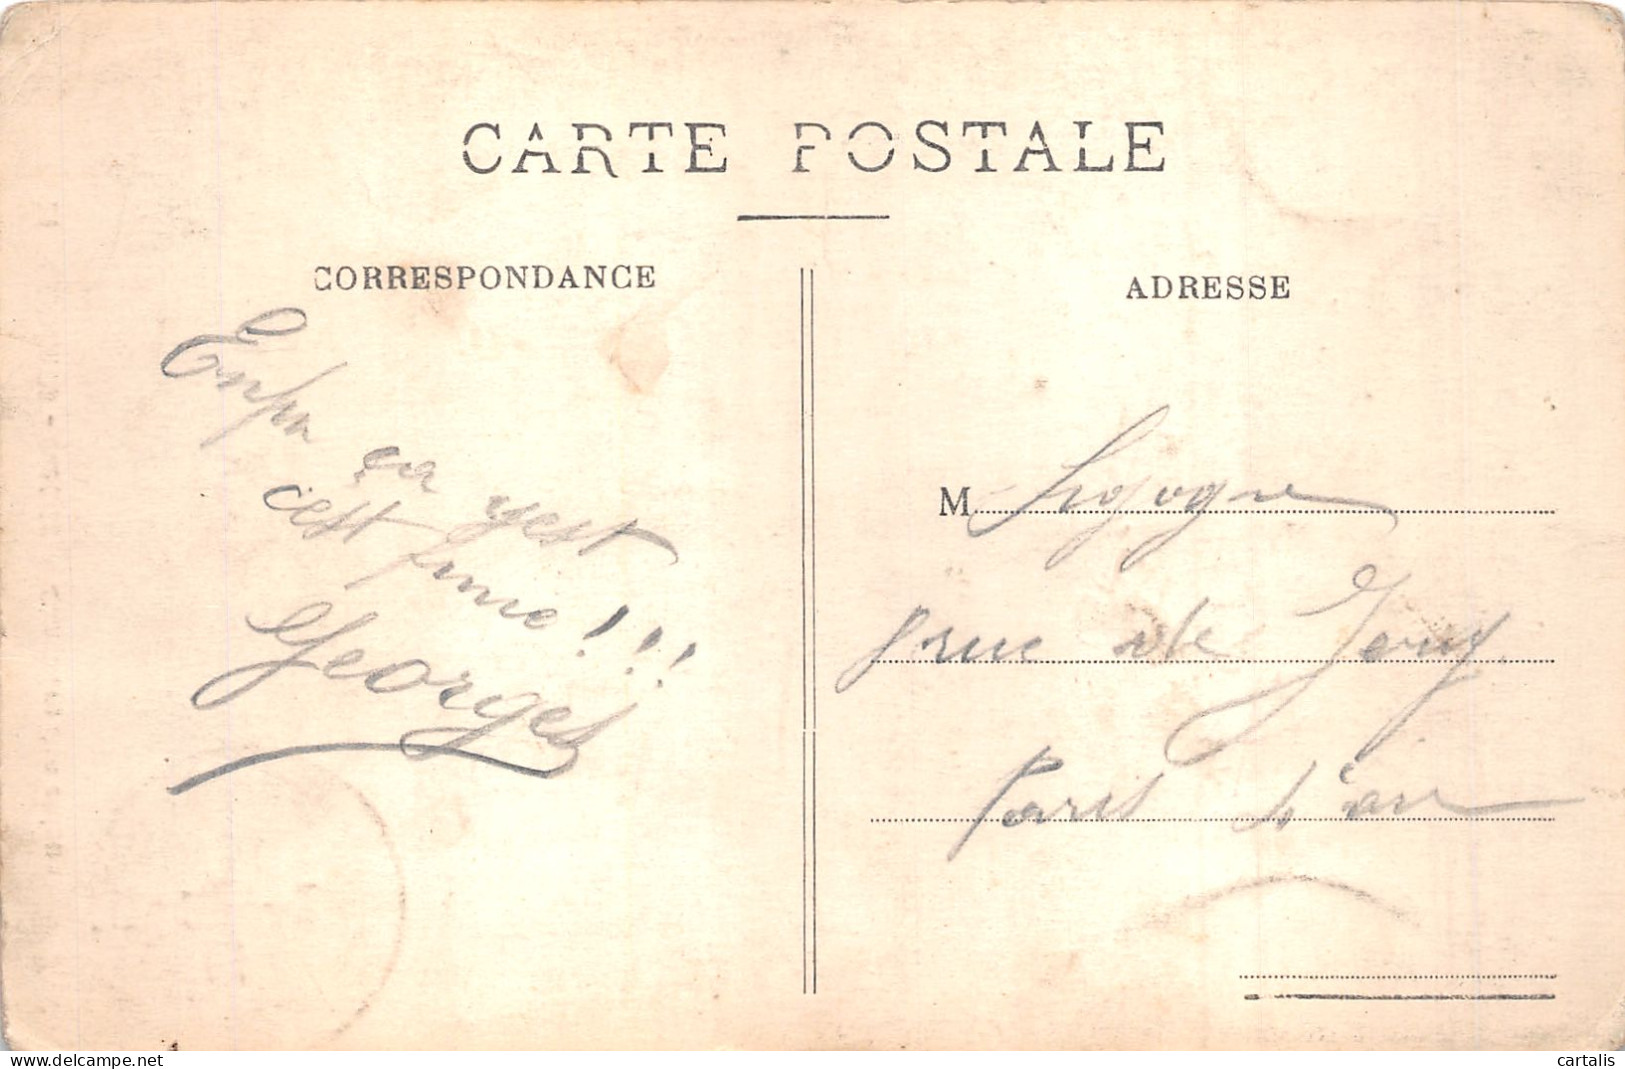 CARTE POSTALE
CORRESPONDANCE
Enfin ça yest
c'est finie !!!
Georges
ADRESSE
M Ligogne
rue de Jouy
Paris
www.delcampe.net
cartalis